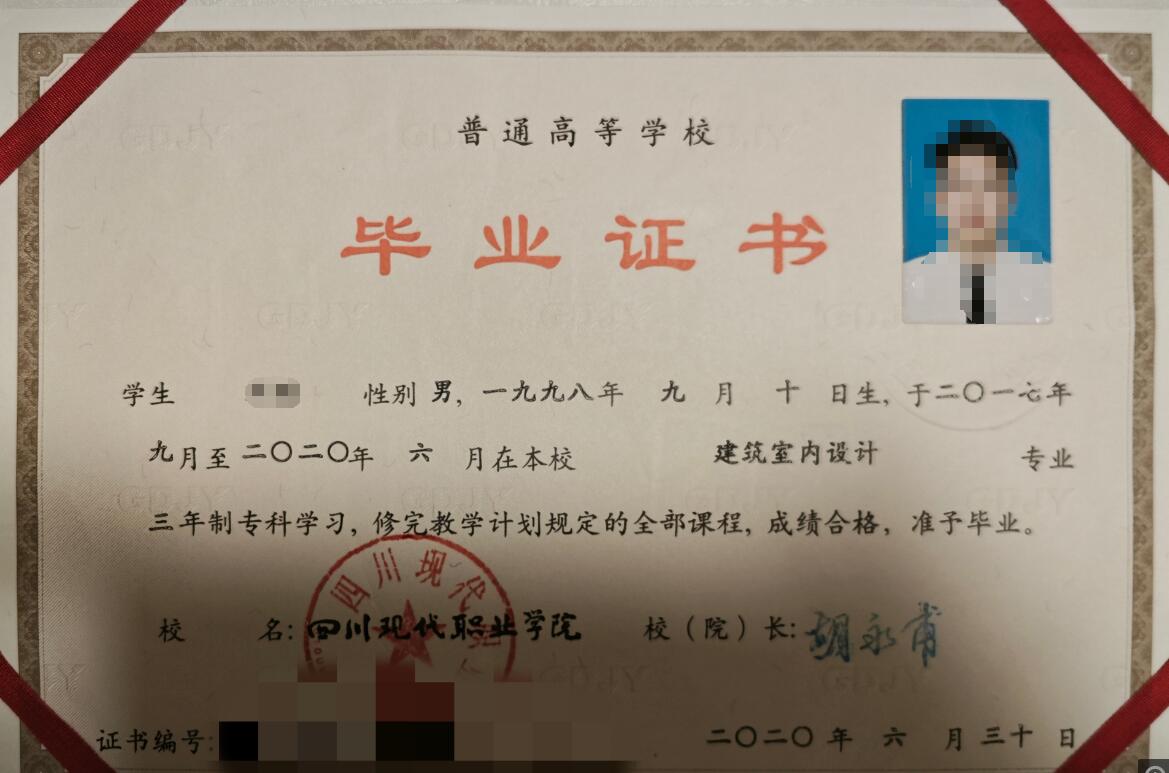 普通高等学校
毕业证书
学生 性别 男，一九九八年 九 月 十 日生，于二〇一七年
九月至二〇二〇年 六 月在本校 建筑室内设计 专业
三年制专科学习，修完教学计划规定的全部课程，成绩合格，准予毕业。
四川现代
校 名：四川现代职业学院 校（院）长：胡永甫
证书编号：
二〇二〇 年 六 月 三十 日